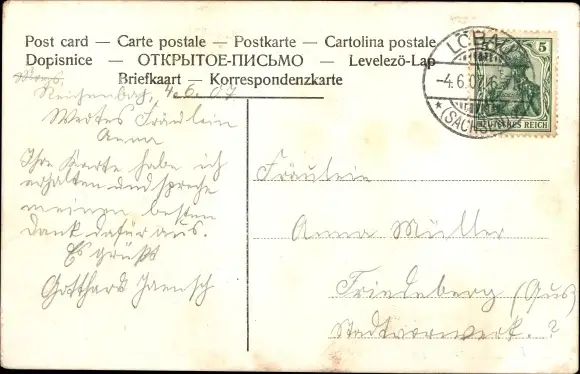 Post card — Carte postale — Postkarte — Cartolina postale
Dopisnice — ОТКРЫТОЕ-ПИСЬМО — Levelezö-Lap
Briefkaart — Korrespondenzkarte
LÖBAU
-4.6.07.
* (SACHSEN)
5
DEUTSCHES REICH
Reichenbach, 4.6.07
Wertes Fräulein
Anna
Ihre Karte habe ich
erhalten und spreche
meinen besten
Dank dafür aus.
Es grüßt
Gotthard Jaensch
Fräulein
Anna Müller
Friedeberg (Queis)
Stadtvorwerk. 2